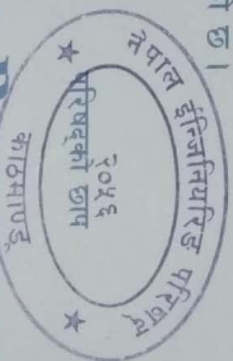 छ।
नेपाल ईन्जिनियरिङ परिषद्
२०५६
परिषद्को छाप
काठमाण्डू